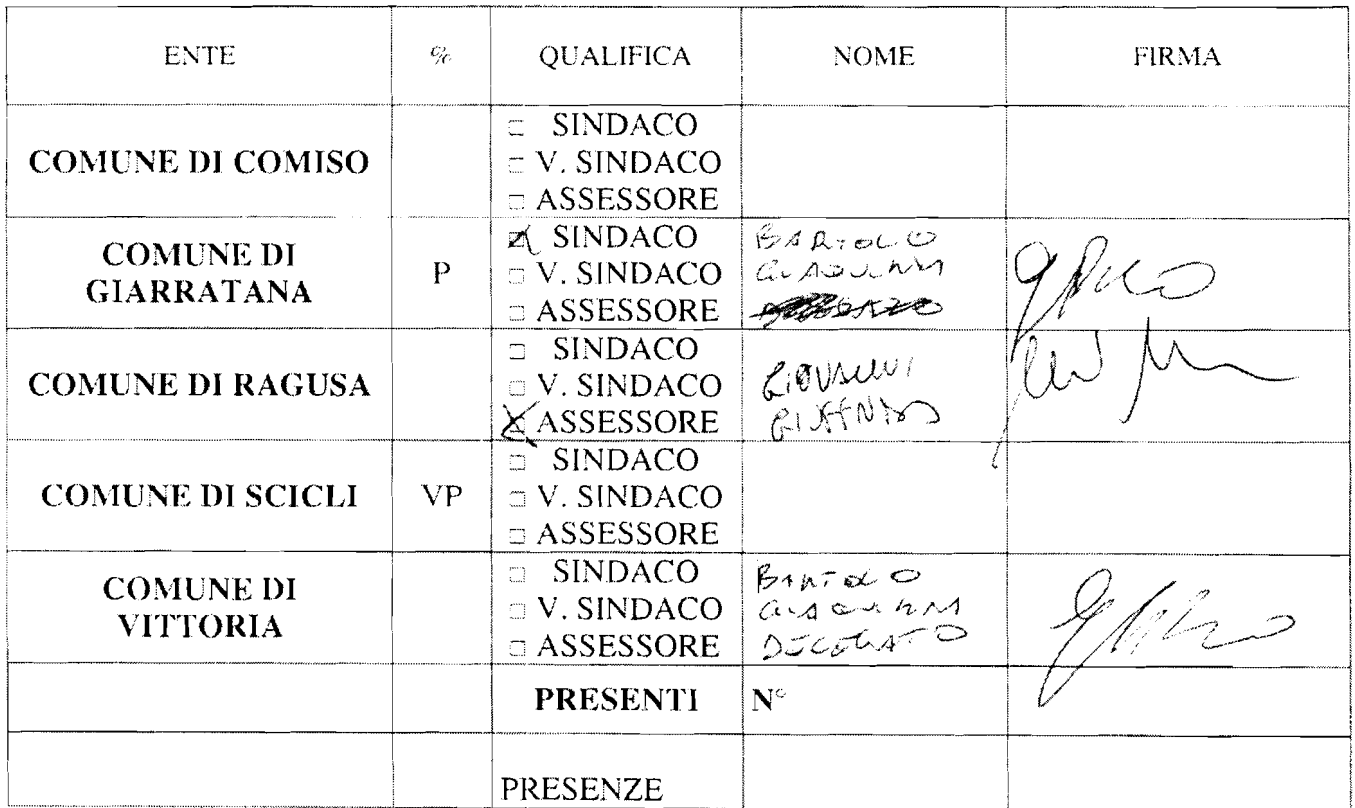 ENTE % QUALIFICA NOME FIRMA
COMUNE DI COMISO
□ SINDACO
□ V. SINDACO
□ ASSESSORE
COMUNE DI
GIARRATANA
P
☒ SINDACO
□ V. SINDACO
□ ASSESSORE
BARTOLO
COMUNE DI RAGUSA
□ SINDACO
□ V. SINDACO
☒ ASSESSORE
GIOVANNI
COMUNE DI SCICLI
VP
□ SINDACO
□ V. SINDACO
□ ASSESSORE
COMUNE DI
VITTORIA
□ SINDACO
□ V. SINDACO
□ ASSESSORE
BARTOLO
DELEGATO
PRESENTI N°
PRESENZE